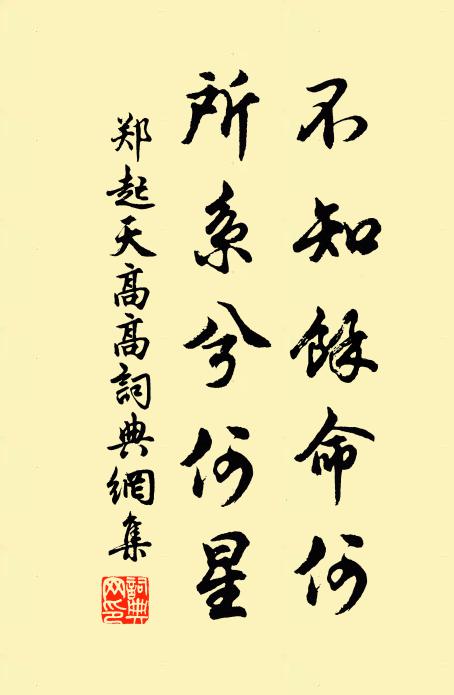 不知馀命何
所系兮何星
郑起天高高詞典網集
詞典網印